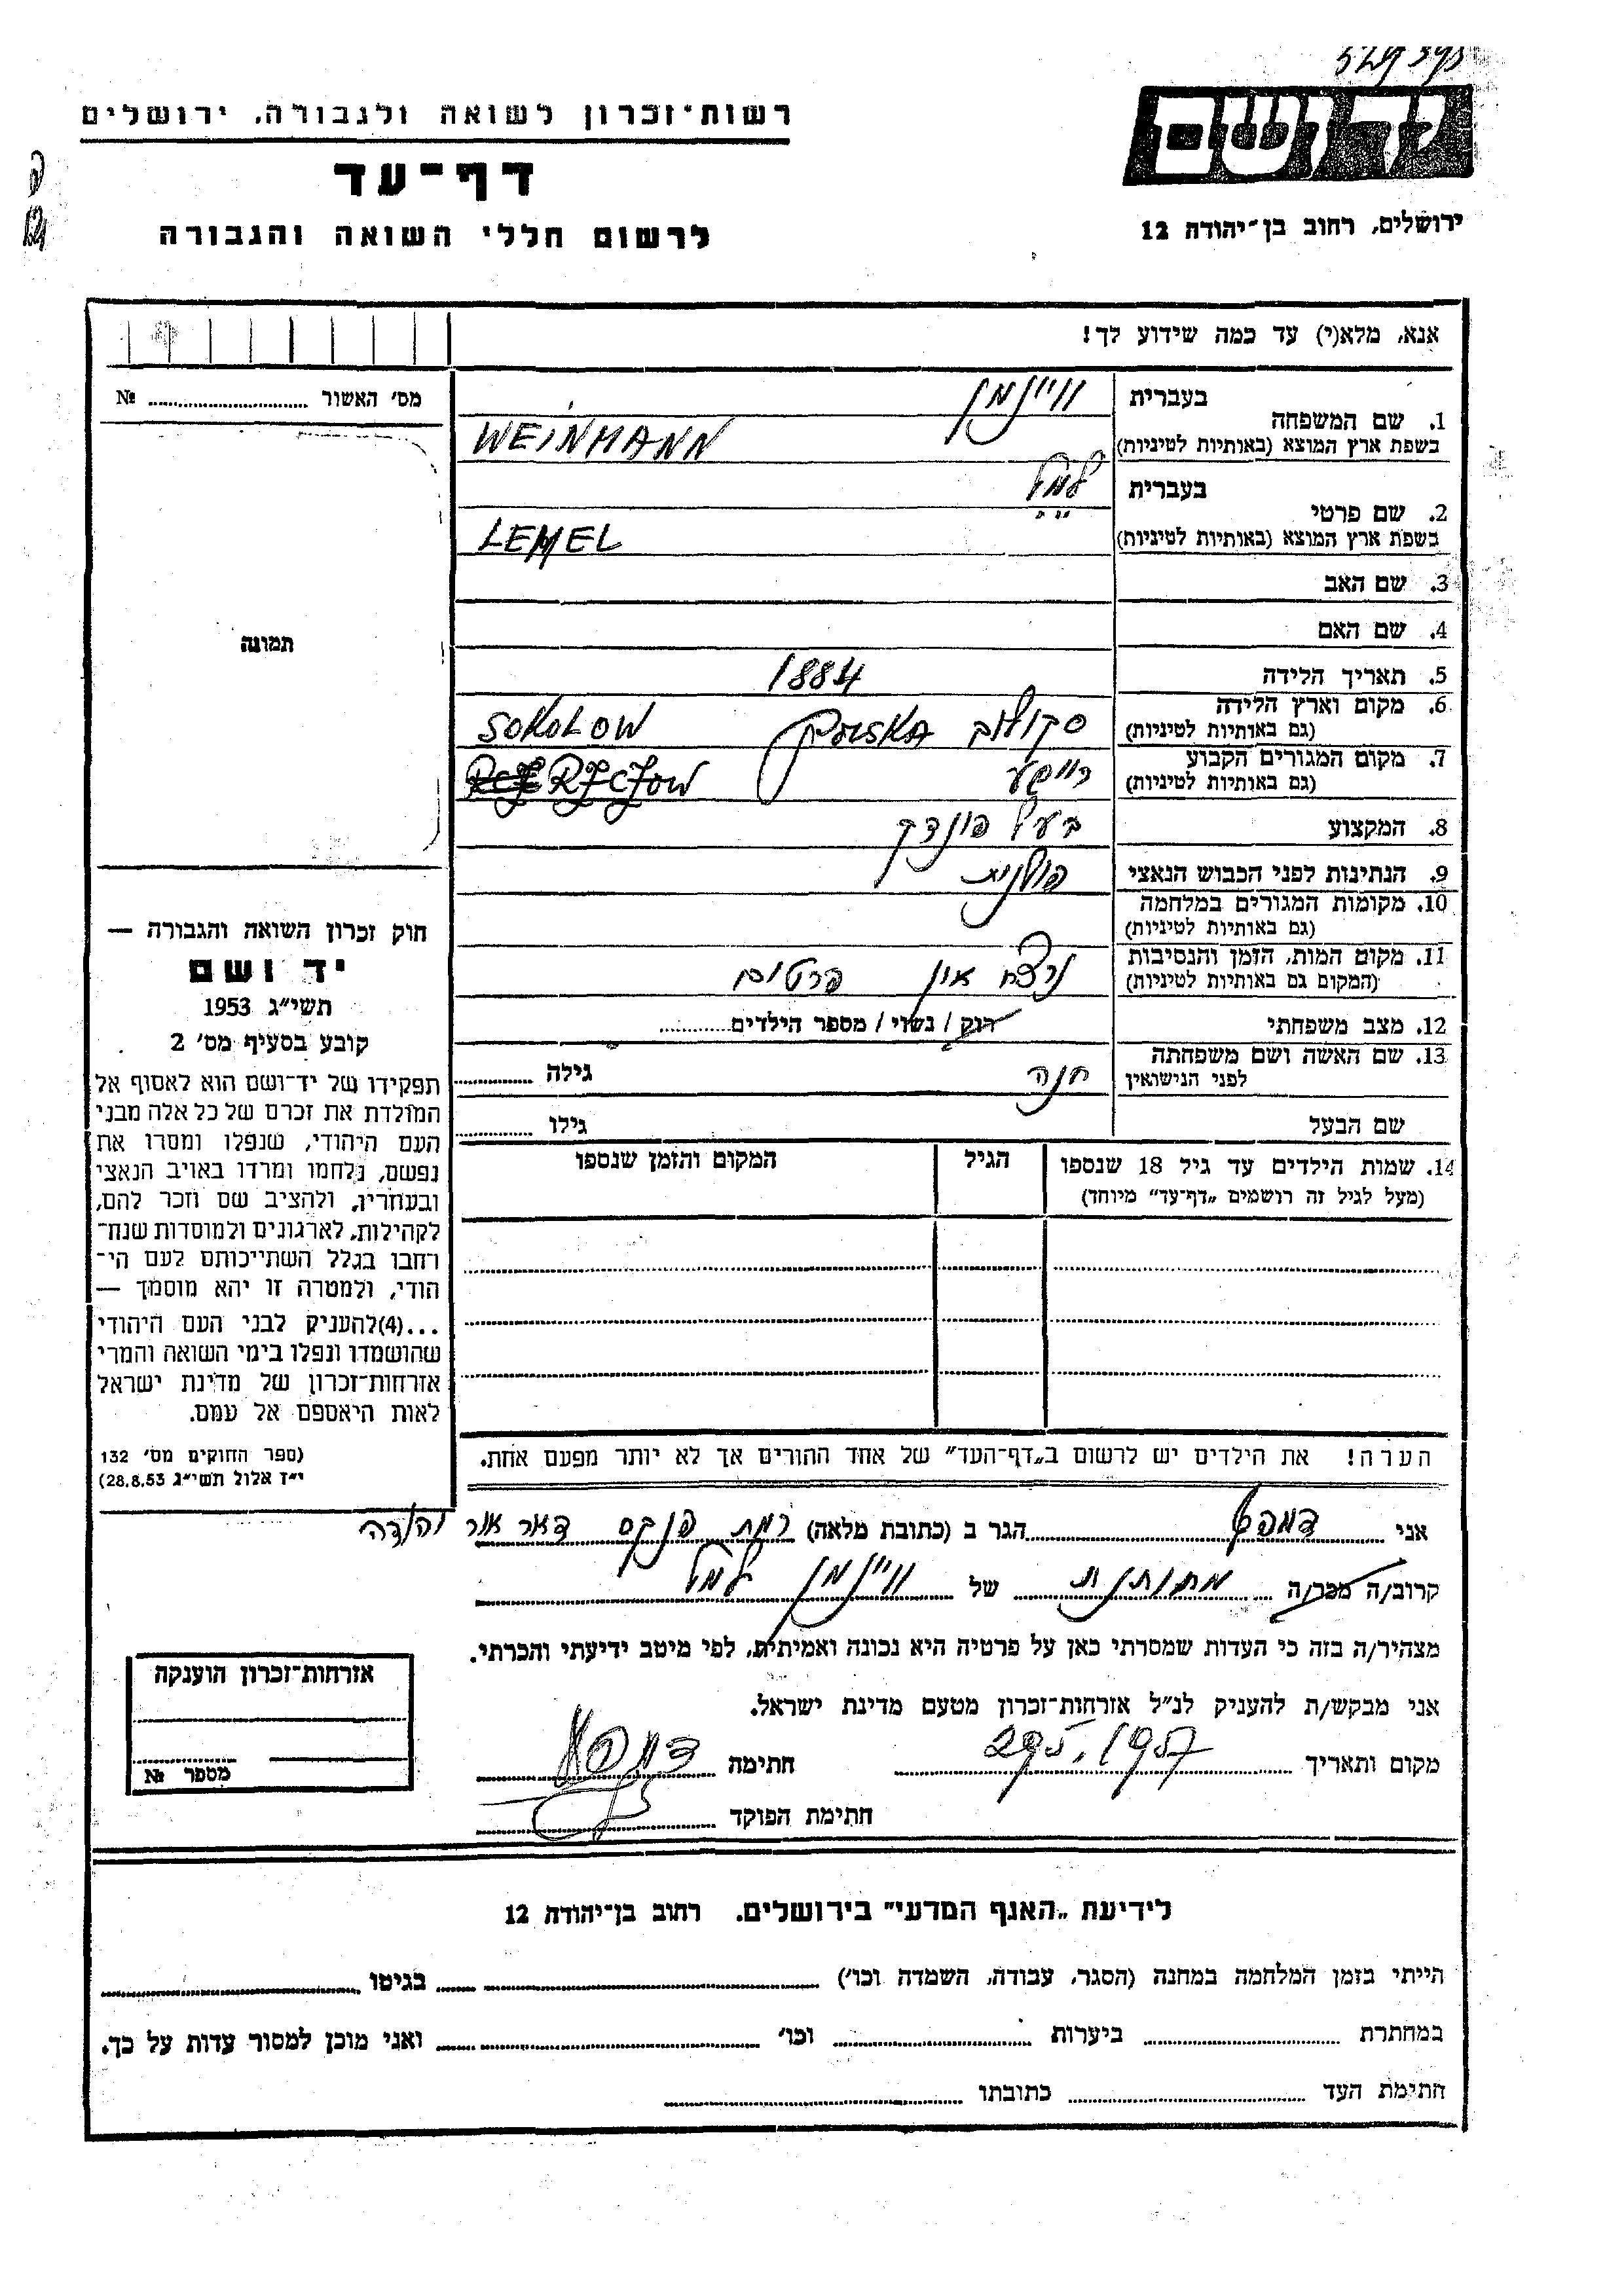 רשות־זכרון לשואה ולגבורה, ירושלים
דף־עד
לרשום חללי השואה והגבורה
יד ושם
ירושלים, רחוב בן־יהודה 12
אנא, מלא(י) עד כמה שידוע לך!
מס׳ האשור № 
תמונה
חוק זכרון השואה והגבורה —
יד ושם
תשי״ג 1953
קובע בסעיף מס׳ 2
תפקידו של יד־ושם הוא לאסוף אל
המולדת את זכרם של כל אלה מבני
העם היהודי, שנפלו ומסרו את
נפשם, נלחמו ומרדו באויב הנאצי
ובעוזריו, ולהציב שם וזכר להם,
לקהילות, לארגונים ולמוסדות שנח־
רחבו בגלל השתייכותם לעם הי־
הודי, ולמטרה זו יהא מוסמך —
...(4)להעניק לבני העם היהודי
שהושמדו ונפלו בימי השואה והמרי
אזרחות־זכרון של מדינת ישראל
לאות היאספם אל עמם.
(ספר החוקים מס׳ 132
י״ז אלול תשי״ג 28.8.53)
בעברית וויינמן
1. שם המשפחה
בשפת ארץ המוצא (באותיות לטיניות) WEINMANN
בעברית למל
2. שם פרטי
בשפת ארץ המוצא (באותיות לטיניות) LEMEL
3. שם האב
4. שם האם
5. תאריך הלידה 1884
6. מקום וארץ הלידה סקולוב POLSKA SOKOLOW
(גם באותיות לטיניות)
7. מקום המגורים הקבוע
(גם באותיות לטיניות)
8. המקצוע בעל פונדק
9. הנתינות לפני הכבוש הנאצי פולנית
10. מקומות המגורים במלחמה
(גם באותיות לטיניות)
11. מקום המות, הזמן והנסיבות נרצח
(המקום גם באותיות לטיניות)
12. מצב משפחתי רוק / נשוי / מספר הילדים
13. שם האשה ושם משפחתה חנה גילה
לפני הנישואין
שם הבעל גילו
14. שמות הילדים עד גיל 18 שנספו הגיל המקום והזמן שנספו
(מעל לגיל זה רושמים „דף־עד״ מיוחד)
הערה! את הילדים יש לרשום ב„דף־העד״ של אחד ההורים אך לא יותר מפעם אחת.
אני הגר ב (כתובת מלאה) רמת פנקס דאר אור יהודה
קרוב/ה מכר/ה מחותנת של וויינמן למל
מצהיר/ה בזה כי העדות שמסרתי כאן על פרטיה היא נכונה ואמיתית, לפי מיטב ידיעתי והכרתי.
אני מבקש/ת להעניק לנ״ל אזרחות־זכרון מטעם מדינת ישראל.
מקום ותאריך 29.5.1957 חתימה
חתימת הפוקד
אזרחות־זכרון הוענקה
מספר №
לידיעת „האגף המדעי״ בירושלים. רחוב בן־יהודה 12
הייתי בזמן המלחמה במחנה (הסגר, עבודה, השמדה וכו׳) בגיטו
במחתרת ביערות וכו׳ ואני מוכן למסור עדות על כך.
חתימת העד כתובתו